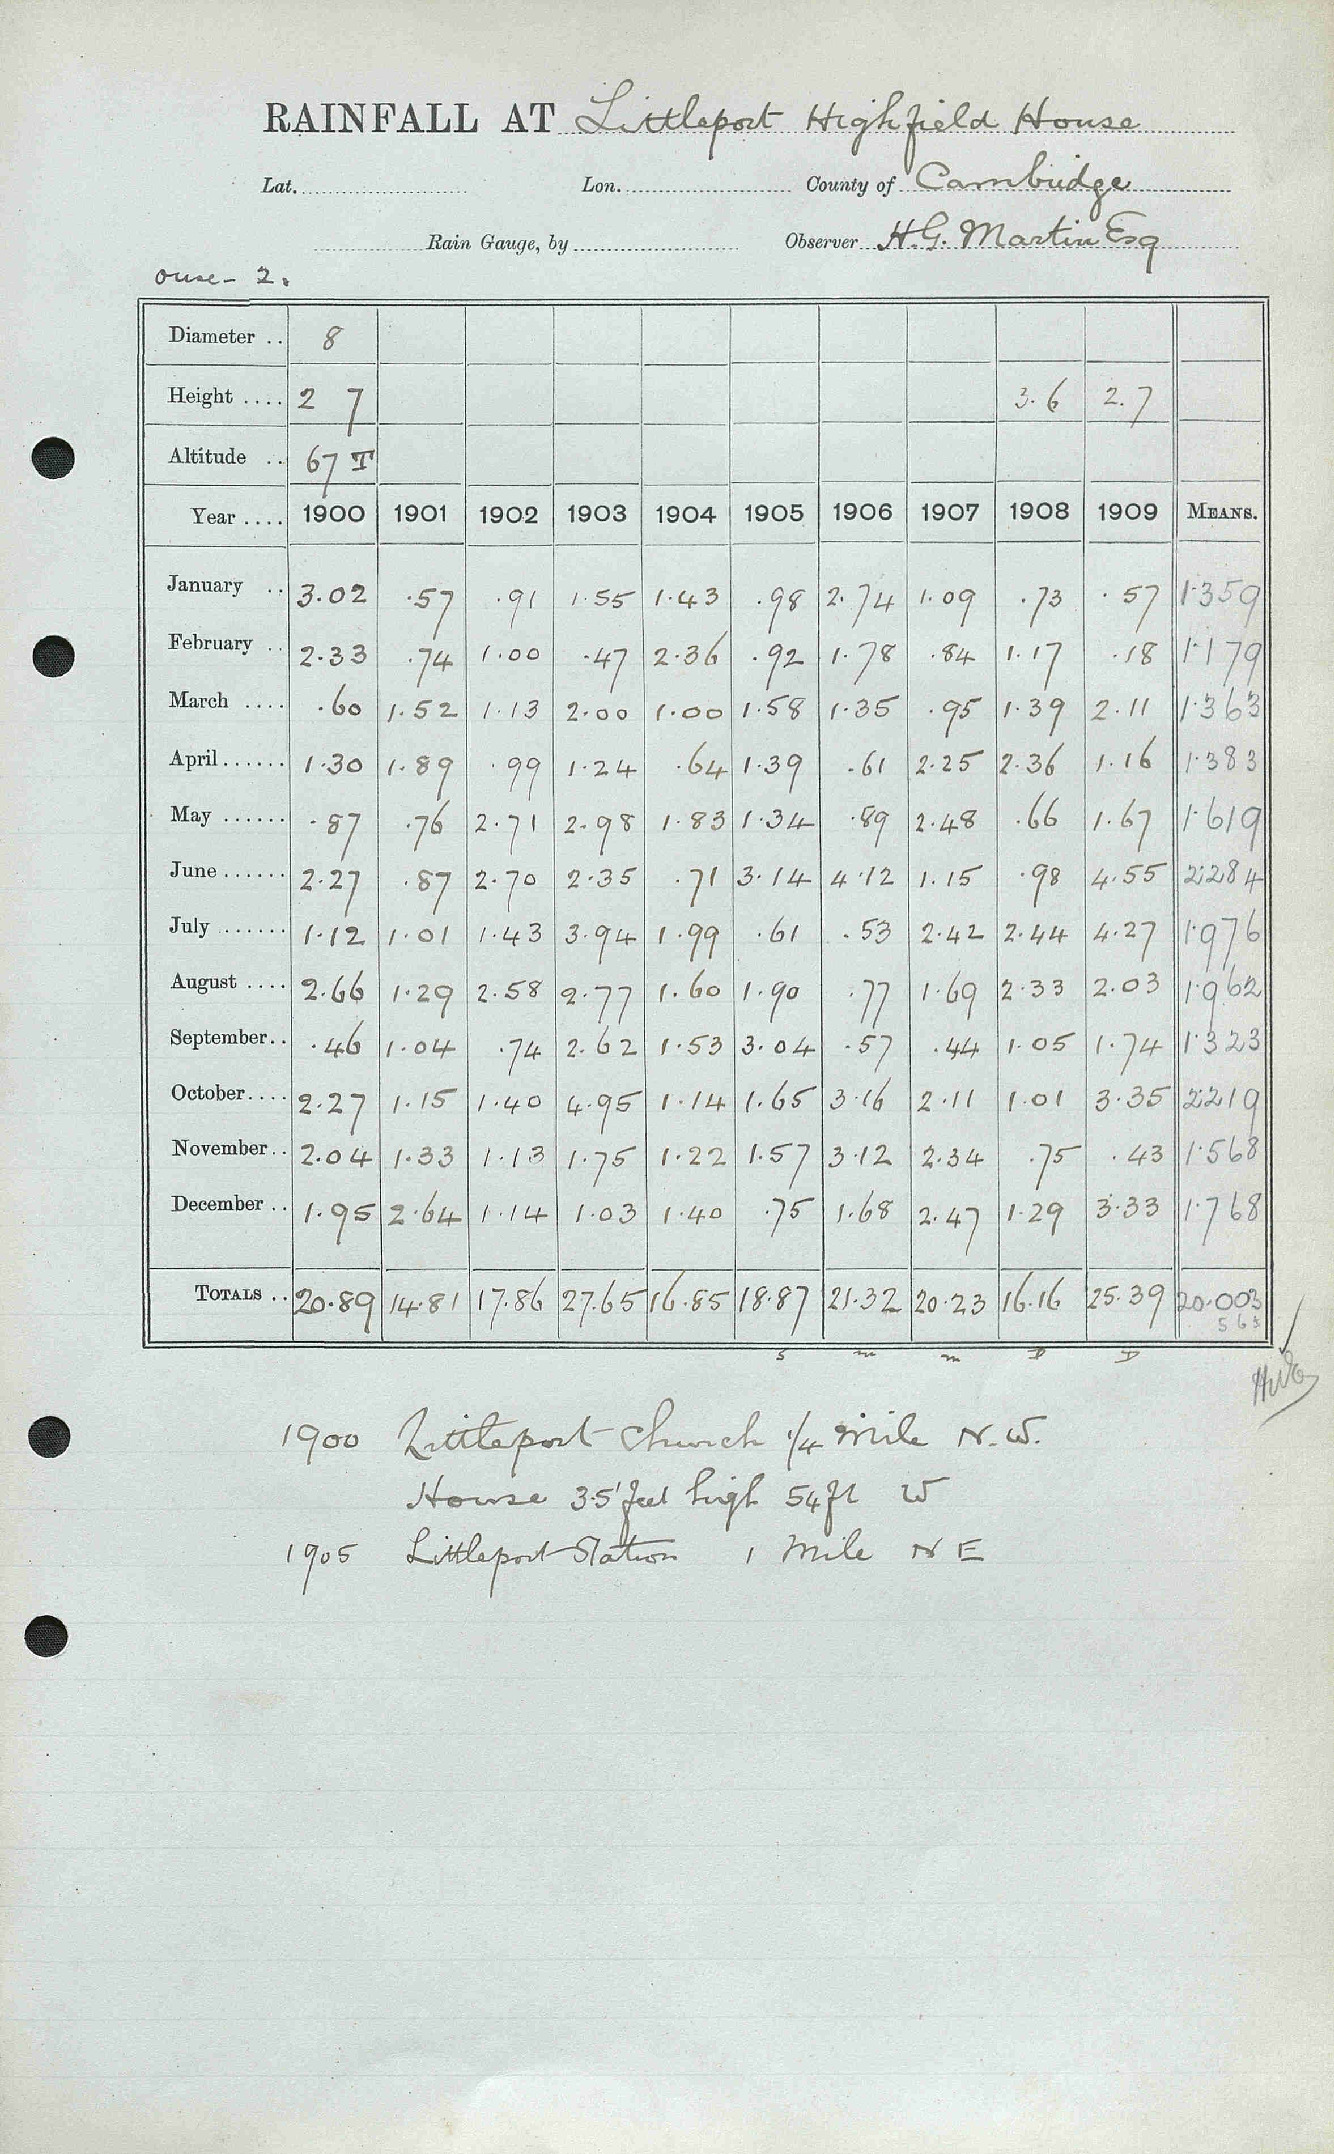 RAINFALL AT Littleport Highfield House
Lat. Lon. County of Cambridge
Rain Gauge, by Observer H.G. Martin Esq
Ouse - 2.
Diameter .. 8
Height .... 2 7 3.6 2.7
Altitude .. 67 T
Year .... 1900 1901 1902 1903 1904 1905 1906 1907 1908 1909 MEANS.
January .. 3.02 .57 .91 1.55 1.43 .98 2.74 1.09 .73 .57 1.359
February .. 2.33 .74 1.00 .47 2.36 .92 1.78 .84 1.17 .18 1.179
March .... .60 1.52 1.13 2.00 1.00 1.58 1.35 .95 1.39 2.11 1.363
April...... 1.30 1.89 .99 1.24 .64 1.39 .61 2.25 2.36 1.16 1.383
May ...... .87 .76 2.71 2.98 1.83 1.34 .89 2.48 .66 1.67 1.619
June ...... 2.27 .87 2.70 2.35 .71 3.14 4.12 1.15 .98 4.55 2.284
July ....... 1.12 1.01 1.43 3.94 1.99 .61 .53 2.42 2.44 4.27 1.976
August .... 2.66 1.29 2.58 2.77 1.60 1.90 .77 1.69 2.33 2.03 1.962
September.. .46 1.04 .74 2.62 1.53 3.04 .57 .44 1.05 1.74 1.323
October.... 2.27 1.15 1.40 4.95 1.14 1.65 3.16 2.11 1.01 3.35 2.219
November.. 2.04 1.33 1.13 1.75 1.22 1.57 3.12 2.34 .75 .43 1.568
December .. 1.95 2.64 1.14 1.03 1.40 .75 1.68 2.47 1.29 3.33 1.768
TOTALS .. 20.89 14.81 17.86 27.65 16.85 18.87 21.32 20.23 16.16 25.39 20.003
S m m D D
1900 Littleport Church 1/4 Mile N.W.
House 35 feet high 54 ft W
1905 Littleport Station 1 Mile N E